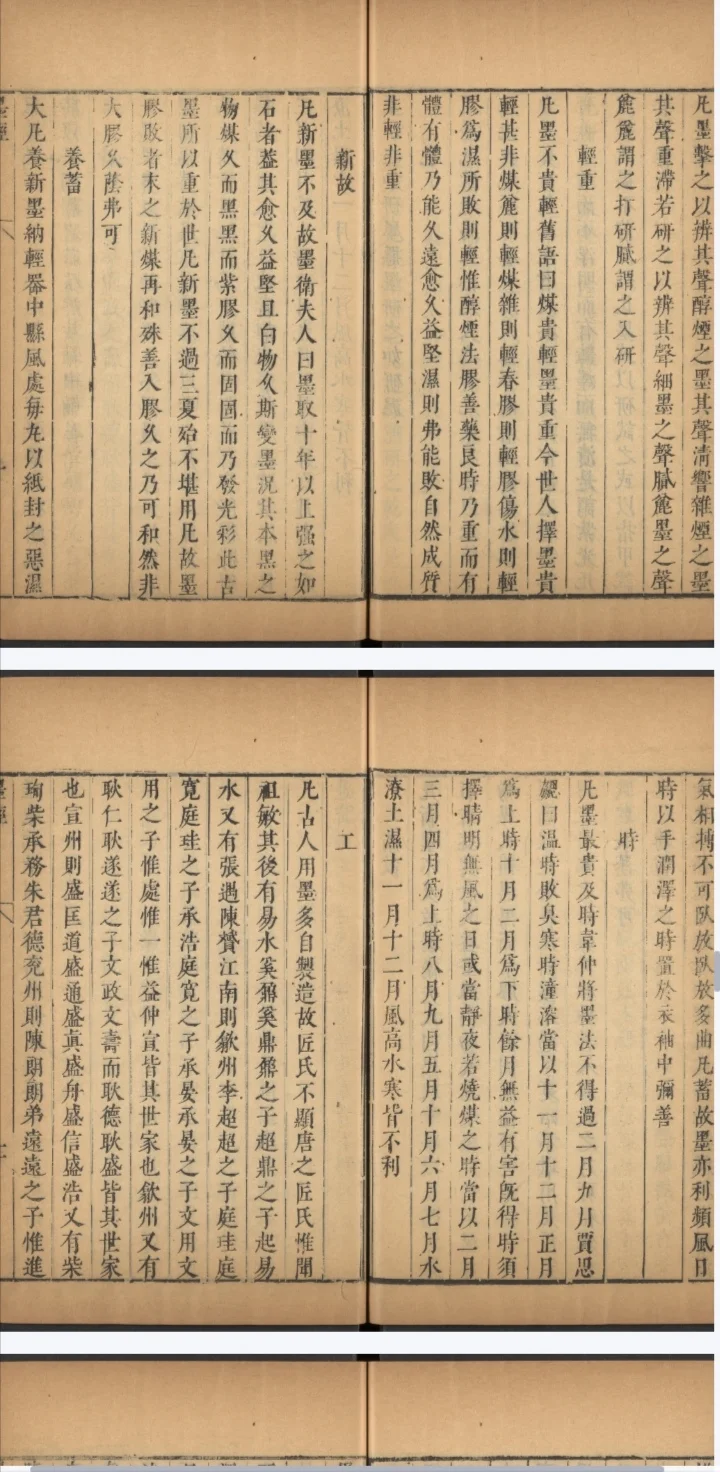 凡墨擊之以辨其聲醇煙之墨其聲清響雜煙之墨
其聲重滯若研之以辨其聲細墨之聲膩麄墨之聲
麄麄謂之打研膩謂之入研
輕重
凡墨不貴輕舊語曰煤貴輕墨貴重今世人擇墨貴
輕甚非煤麄則輕煤雜則輕春膠則輕膠傷水則輕
膠為濕所敗則輕惟醇煙法膠善藥良時乃重而有
體有體乃能久遠愈久益堅濕則弗能敗自然成質
非輕非重
新故
凡新墨不及故墨衛夫人曰墨取十年以上强之如
石者葢其愈久益堅且白物久斯變墨況其本黑之
物煤久而黑黑而紫膠久而固固而乃發光彩此古
墨所以重於世凡新墨不過三夏殆不堪用凡故墨
膠敗者末之新煤再和殊善入膠久之乃可和然非
大膠久蔭弗可
養蓄
大凡養新墨納輕器中縣風處每丸以紙封之惡濕
墨經
氣相摶不可臥放臥放多曲凡蓄故墨亦利頻風日
時以手潤澤之時置於衣袖中彌善
時
凡墨最貴及時韋仲將墨法不得過二月九月賈思
勰曰溫時敗臭寒時潼溶當以十一月十二月正月
為上時十月二月為下時餘月無益有害既得時須
擇晴明無風之日或當靜夜若燒煤之時當以二月
三月四月為上時八月九月五月十月六月七月水
潦土濕十一月十二月風高水寒皆不利
工
凡古人用墨多自製造故匠氏不顯唐之匠氏惟聞
祖敏其後有易水奚鼐奚鼎鼐之子超鼎之子起易
水又有張遇陳贇江南則歙州李超超之子庭珪庭
寬庭珪之子承浩庭寬之子承晏承晏之子文用文
用之子惟處惟一惟益仲宣皆其世家也歙州又有
耿仁耿遂遂之子文政文壽而耿德耿盛皆其世家
也宣州則盛匡道盛通盛真盛舟盛信盛浩又有柴
珣柴承務朱君德兖州則陳朗朗弟遠遠之子惟進
墨經